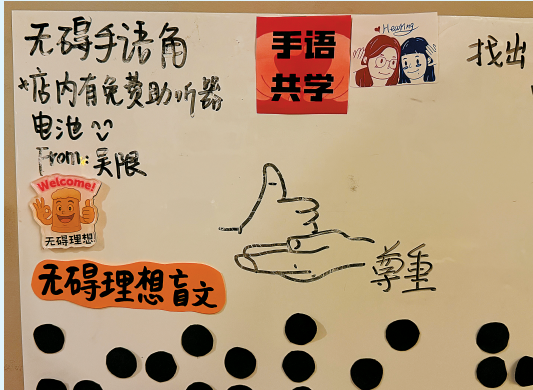 无碍手语角
*店内有免费助听器
电池
From: 吴限
Welcome!
无碍理想
无碍理想盲文
手语
共学
Hearing
找出
尊重